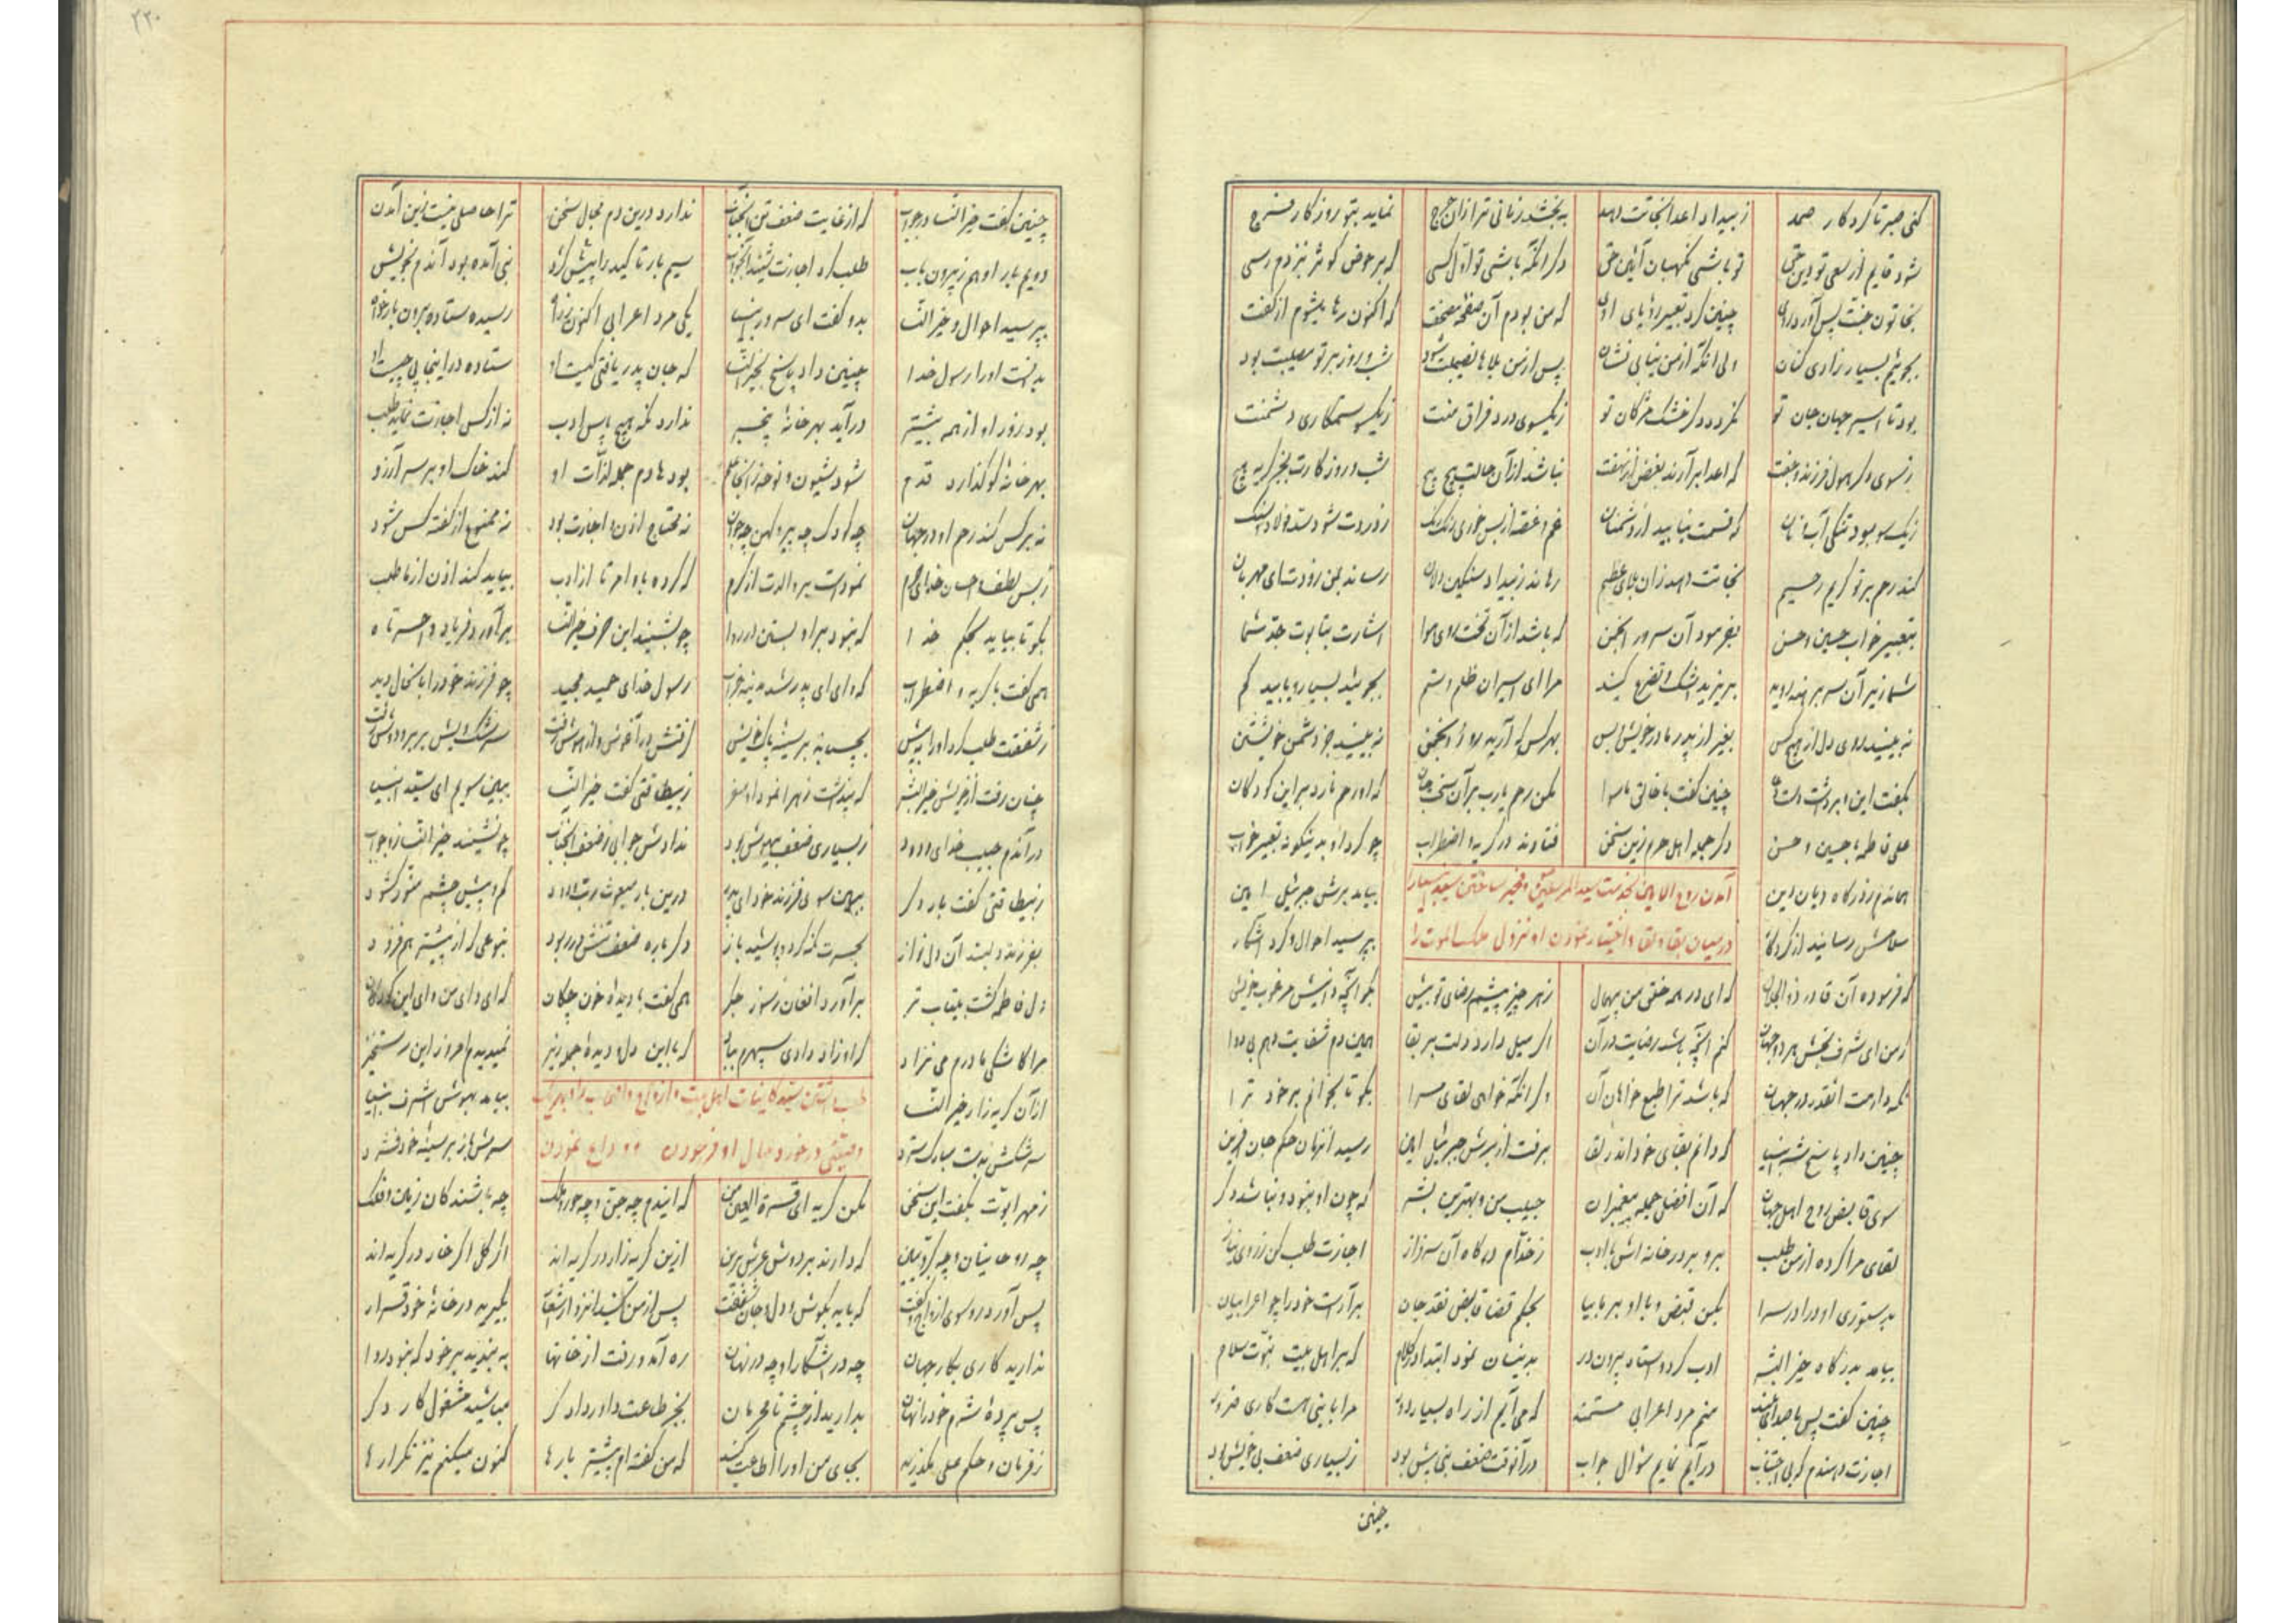 کنی صبر تا کردکار صمد ز بیداد اعدا نجاتت دهد به بخشد زمانی ترا زان حرج نماید بتو روزکار فرج
شود قایم از سعی تو دین حق تو باشی نکهبان آئین حق دکر آنکه باشی تو اول کسی که بر حوض کوثر بنزدم رسی
بخاتون جنت پس آورد روی چنین کرد تعبیر رؤیای اوی که من بودم آن صفحه مصحفت که اکنون رها میشوم از کفت
بجوئیم بسیار زاری کنان ولی آنکه از من نیابی نشان پس از من بلاها نصیبت شود شب و روز بر تو مصیبت بود
بود تا اسیر جهان جان تو نکردد دکر خشک مژکان تو ز یکسوی درد فراق منت ز یکسو ستمکاری دشمنت
ز سوی دکر هول فرزند و جفت که اعدا برآرند بغض از نهفت نباشد از آن حالت هیچ هیچ شب و روز کارت بجز کریه هیچ
ز یک سو بود تنکی آب و نان که قسمت نیابید از دشمنان غم و غصه از بس خوری رنک رنک
کند رحم بر تو کریم رحیم نجاتت دهد زان بلای عظیم رهاند ز بیداد سنکین دلان رساند بمن زودت ای مهربان
بتعبیر خواب حسین و حسن بفرمود آن سرور انجمن که باشد از آن تخت روی هوا اشارت بتابوت جد شما
شما زیر آن سر برهنه بریزید اشک و تضرع کنید مرا ای اسیران ظلم و ستم بجوئید بسیار و یابید کم
نه بینید روی دل از هیچ کس بغیر از پدر مادر خویش و بس بهر کس که آرید رو نه بینید جز دشمن خویشتن
بکفت این و برداشت دست چنین کفت با خالق ماسوا بکن رحم یا رب بر آن که او رحم نارد بر این کودکان
علی فاطمه با حسین و حسن دکر جمله اهل حرم زین سخن فتادند در کریه و اضطراب چو کرد او بدینکونه تعبیر خواب
آمدن روح الامین بخدمت سید المرسلین و مخیر ساختن
در میان بقا و لقا و اختیار نمودن او نزول ملک الموت را
هماندم ز درکاه دیان دین بیامد برش جبرئیل امین
سلامش رسانید از کردکار بپرسید احوال و کرد آشکار
که فرموده آن قادر ذوالجلال که ای در همه خلق من بیهمال ز هر چیز پیشم رضای تو بیش بکو آنچه دانیش مرغوب خویش
ز من ای شرف بخش هر دو جهان کنم آنچه باشد رضایت در آن اکر میل دارد دلت بر بقا همین دم شفایت دهم بی دوا
نکه دارمت آنقدر در جهان که باشد ترا طبع خواهان آن وکر آنکه خواهی لقای مرا بکو تا بخوانم بر خود ترا
چنین داد پاسخ شه انبیا که دانم بقای خود اندر لقا برفت از برش جبرئیل امین رسید آنزمان حکم جان آفرین
سوی قابض روح اهل جهان که آن افضل جمله پیغمبران حبیب من و بهترین بشر که چون او نبود و نباشد دکر
لقای مرا کرده از من طلب برو بر در خانه اش با ادب ز خدام درکاه آن سرفراز اجازت طلب کن ز روی نیاز
بدستوری او درا در سرا بکن قبض و با او بر ما بیا بحکم قضا قابض نقد جان برآراست خود را چو اعرابیان
بیامد بدرکاه خیر البشر ادب کرد و استاد بیرون در بدینسان نمود ابتدا در کلام که بر اهل بیت نبوت سلام
چنین کفت پس با صدای بلند منم مرد اعرابی مستمند که می آیم از راه بسیار دور مرا با نبی هست کاری ضرور
اجازت دهندم که بی اجتناب درآیم نمایم سؤال جواب در آنوقت ضعف نبی بیش بود ز بسیاری ضعف بی خویش بود
چنین
۲۲۰
چنین کفت خیر النسا در جواب که از غایت ضعف تن آنجناب ندارد درین دم مجال سخن ترا حاصلی نیست زین آمدن
دویم بار او هم ز بیرون باب طلب کرد اجازت شنید آنجواب سیم بار تاکید را پیش کرد نبی آمده بود آندم بخویش
بپرسید احوال و خیر النسا بدو کفت ای سرور انبیا یکی مرد اعرابی اکنون رسیده ستاده برون بار خواه
بدانست او را رسول خدا چنین داد پاسخ بخیر النسا که جان پدر یافتی کیست او ستاده در اینجا پی چیست او
بود زور او از همه بیشتر درآید بهر خانه بیخبر ندارد نکه هیچ پاس ادب نه از کس اجازت نماید طلب
بهر خانه کو کذارد قدم شود شیون و نوحه ز آنجا علم بود هادم جمله لذات او کند خاک او بر سر آرزو
نه بر کس کند رحم او در جهان چه کودک چه پیر و کهن چه جوان نه محتاج اذن و اجازت بود نه ممنوع از کفته کس شود
ز بس لطف و احسان خدای نمودست بر والدت از کرم که کرده باو امر تا از ادب بیاید کند اذن از ما طلب
بکو تا بیاید بحکم خدا که نبود بر او بستن در روا چو بشنید این حرف خیر النسا برآورد فریاد وا حسرتا
همی کفت با کریه و اضطراب که وای ای پدر شد مدینه خراب رسول خدای حمید مجید چو فرزند خود را باین حال دید
ز شفقت طلب کرد او را به پیش بچسباند بر سینه پاک خویش کرفتش در آغوش و از هوش رفت سرشکش
چنان رفت از خویش خیر البشر که پنداشت زهرا نمود او سفر ز بیطاقتی کفت خیر النسا ببین سویم ای سید انبیا
در آندم حبیب خدای ودود ز بسیاری ضعف بیهوش بود ندادش جوابی ز ضعف آنجناب چو نشنید خیر النسا زو جواب
ز بیطاقتی کفت بار دکر ببین سوی فرزند خود ای پدر درین بار مبعوث رب ودود
بفرزند دلبند آن دلنواز بحسرت نکه کرد و پوشید باز دکر باره ضعف تنش در ربود بنوعی که از پیشتر هم فزود
دل فاطمه کشت بیتاب تر برآورد افغان ز سوز جکر همی کفت با دیده خون چکان که ای وای من وای این کودکان
مرا کاشکی مادرم می نزاد که با این دل و دیده نمیدیدم امروز این رستخیز
طلب داشتن سید کاینات اهل بیت و ازواج و اصحاب را و هر یک
وصیتی در خورد حال او فرمودن و وداع نمودن
از آن کریه زار خیر النسا بیامد بهوش اشرف انبیا
سرشکش بدست مبارک سترد سرش باز بر سینه خود فشرد
ز مهر ابوت بکفت این سخن مکن کریه ای قرة العین من که ایندم چه جن و چه حور و ملک چه باشندکان زمین و فلک
چه روحانیان و چه کروبیان که دارند بر دوش عرش برین ازین کریه زار در کریه اند از کل اکر خار در کریه اند
پس آورد رو سوی ازواج و کفت که باید بکوش و دل و جان شنفت پس از من بکیرید در خانه خود قرار
ندارید کاری بکار جهان چه در آشکارا و چه در نهان ره آمد و رفت از خانها به بندید بر خود که نبود روا
پس پرده شرم خود را نهان بدارید از چشم نامحرمان بجز طاعت داور دادکر مباشید مشغول کار دکر
ز فرمان و حکم علی مکذرید بجای من او را اطاعت کنید که من کفته ام پیشتر بارها کنون میکنم نیز تکرارها